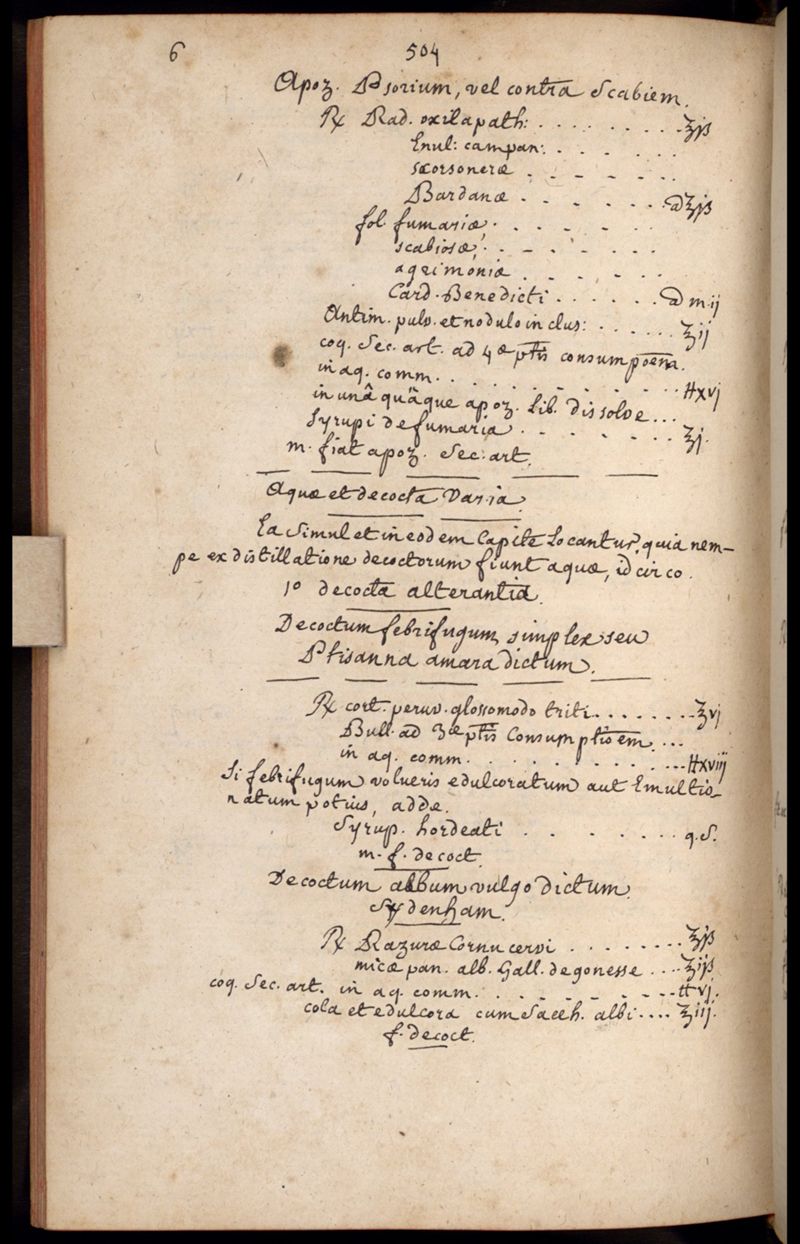 6 504
Apoz. Psorium, vel contra Scabiem.
℞ Rad. oxilapath: . . . . . . . . ℥jß
Enul: campan: . . . . . .
scorsoneræ . . . . . .
Bardanæ . . . . . . a ℥jß
fol. fumariæ . . . . . .
scabiosæ . . . . . .
agrimoniæ . . . . . .
Card. Benedicti . . . . . . a m.ij
Antim. pulv. et nodulo inclus: . . . . . . ℥ij
coq. Sec. art. ad 4æ ptis consumpoem.
in aq. comm. . . . . . . . . ℔xvj
in unâ quâque apoz. lib. dissolve...
Syrupi de fumaria . . . . . . ℥j.
m. fiat apoz. Sec. art.
Aquæ et decocta Varia.
Ea Simul et in eodem Capite locantur, quia nem-
pe ex distillatione decoctorum fiunt aquæ, idcirco.
1o decocta alterantia.
Decoctum febrifugum simplex seu
Ptisanna amara dictum.
℞ cort. peruv. glossomodo triti . . . . . . . ℥vj
Bull. ad 3æ ptis Consumptioem. ...
in aq. comm. . . . . . . . . . ℔xviij
Si febrifugum volueris edulcoratum aut Emultio-
natum potius, adde.
Syrup. hordeati . . . . . . . . q.S.
m. f. decoct.
Decoctum album vulgo dictum.
Sydenham.
℞ Razuræ Cornu cervi . . . . . . . . ℥jß
micæ pan. alb. Gall. de gonesse . . . ℥ijß
coq. Sec. art. in aq. comm. . . . . . . . . ℔vj.
cola et edulcora cum Sacch. albi . . . . ℥iij.
f. decoct.